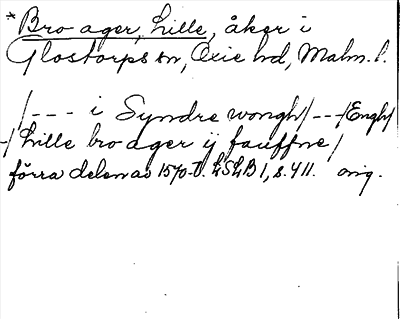 *Bro ager, Lille, åker i
Glostorps sn, Oxie hd, Malm. l.
/--- i Syndre wongh/---/Engh/
-/Lille bro ager ij fauffne/
förra delen av 1570-t. LSLB 1, s. 411. orig.